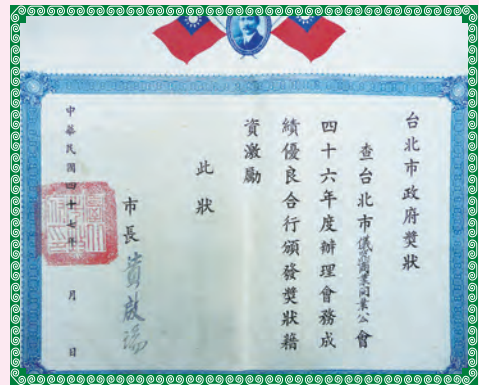 台北市政府獎狀
查台北市儀器商業同業公會
四十六年度辦理會務成
績優良合行頒發獎狀藉
資激勵
此狀
市長 黃啟瑞
中華民國四十七年 月 日